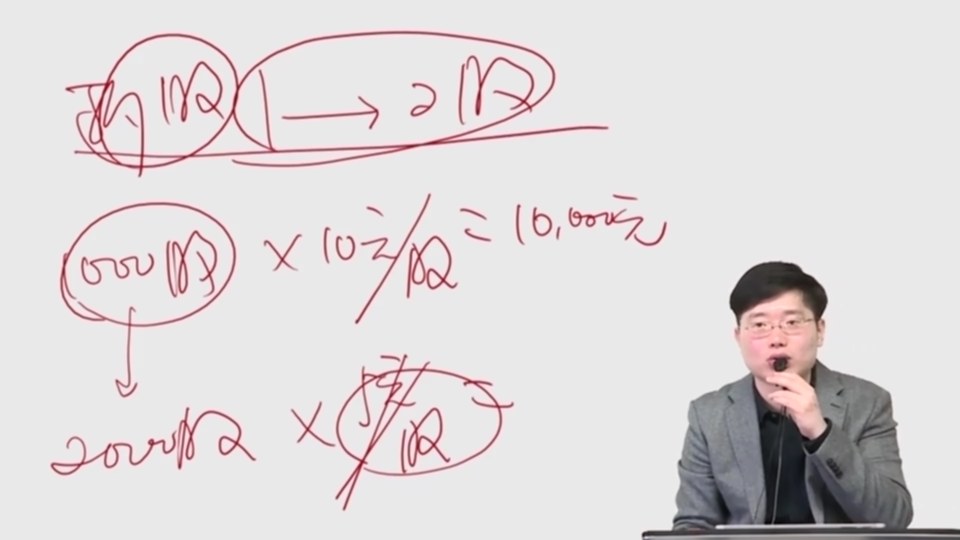 股 1 → 2股
1000股 × 10元/股 = 10,000元
2000股 × 5元/股 =